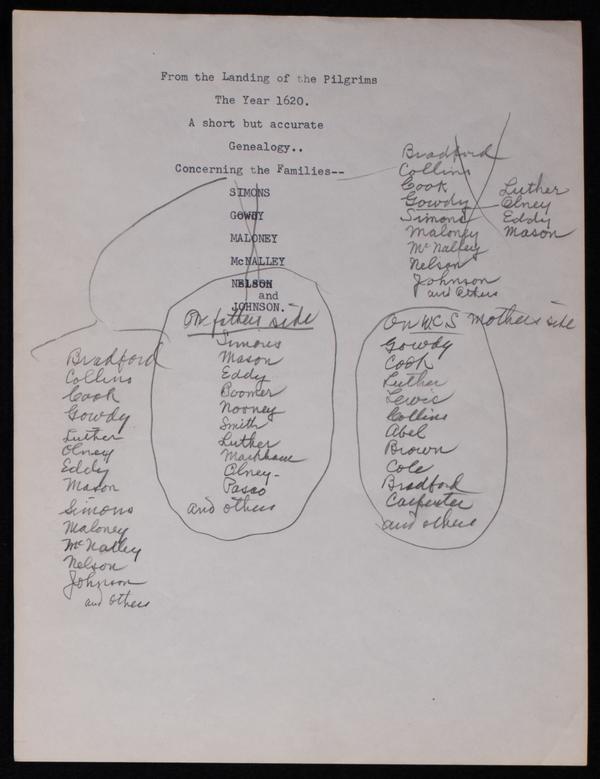 From the Landing of the Pilgrims
The Year 1620.
A short but accurate
Genealogy..
Concerning the Families--
SIMONS
GOWDY
MALONEY
McNALLEY
NELSON
and
JOHNSON.
Bradford
Collins
Cook
Gowdy
Simons
Maloney
McNalley
Nelson
Johnson
and others
Luther
Olney
Eddy
Mason
Bradford
Collins
Cook
Gowdy
Luther
Olney
Eddy
Mason
Simons
Maloney
McNalley
Nelson
Johnson
and others
On fathers side
Simons
Mason
Eddy
Boomer
Nooney
Smith
Luther
Olney-
Pasco
and others
On W.C.S Mothers side
Gowdy
Cook
Luther
Lewis
Collins
Abel
Brown
Cole
Bradford
Carpenter
and others